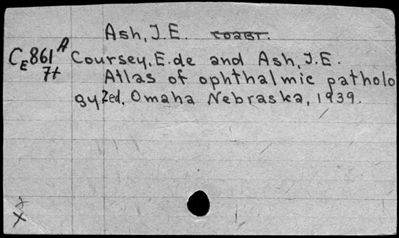 Ash, J.E. coabt.
CE861A Coursey, E. de and Ash, J.E.
7+ Atlas of ophthalmic patholo
gy, 2ed, Omaha Nebraska, 1939.
X